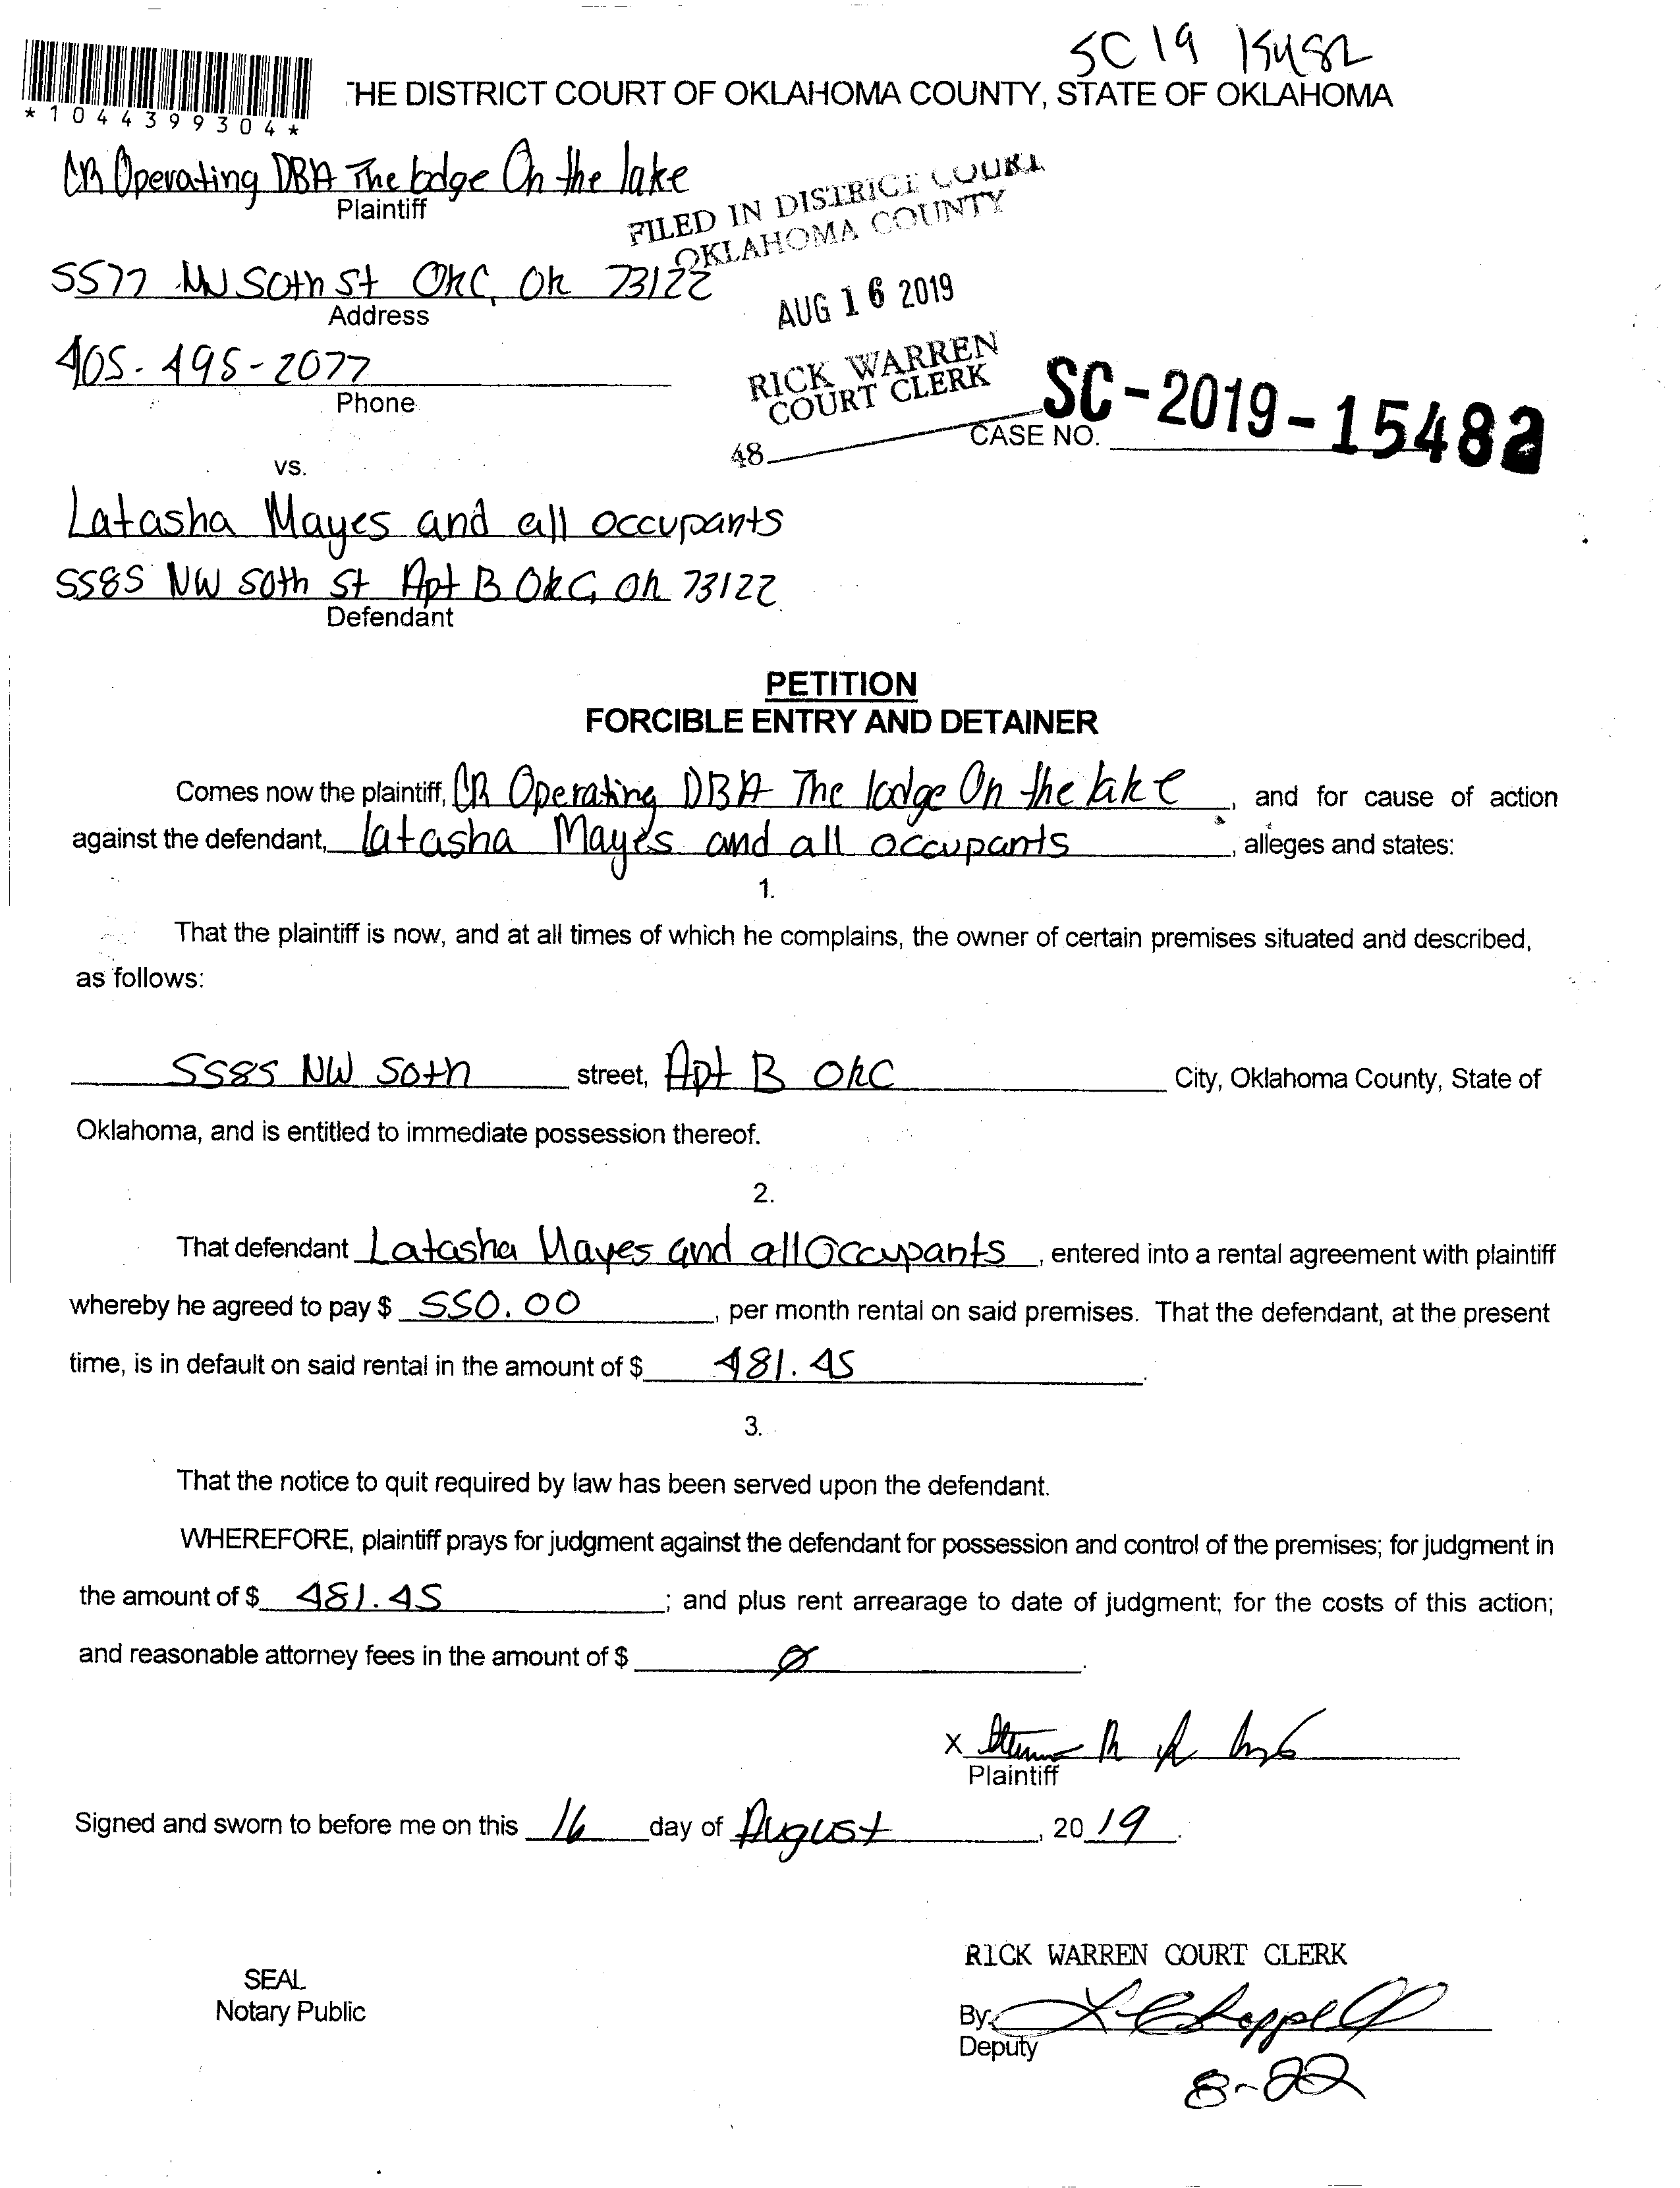 SC19 15482
*1044399304*
THE DISTRICT COURT OF OKLAHOMA COUNTY, STATE OF OKLAHOMA
CR Operating DBA The lodge On the lake
Plaintiff
FILED IN DISTRICT COURT
OKLAHOMA COUNTY
5577 NW 50th St OKC, OK 73122
Address
AUG 16 2019
405-495-2077
Phone
RICK WARREN
COURT CLERK
48
CASE NO. SC-2019-15482
vs.
Latasha Mayes and all occupants
5585 NW 50th St Apt B OKC, OK 73122
Defendant
PETITION
FORCIBLE ENTRY AND DETAINER
Comes now the plaintiff, CR Operating DBA The lodge On the lake, and for cause of action
against the defendant, Latasha Mayes and all occupants, alleges and states:
1.
That the plaintiff is now, and at all times of which he complains, the owner of certain premises situated and described,
as follows:
5585 NW 50th street, Apt B OKC City, Oklahoma County, State of
Oklahoma, and is entitled to immediate possession thereof.
2.
That defendant Latasha Mayes and all Occupants, entered into a rental agreement with plaintiff
whereby he agreed to pay $ 550.00, per month rental on said premises. That the defendant, at the present
time, is in default on said rental in the amount of $ 481.45.
3.
That the notice to quit required by law has been served upon the defendant.
WHEREFORE, plaintiff prays for judgment against the defendant for possession and control of the premises; for judgment in
the amount of $ 481.45; and plus rent arrearage to date of judgment; for the costs of this action;
and reasonable attorney fees in the amount of $ Ø.
X
Plaintiff
Signed and sworn to before me on this 16 day of August, 2019.
RICK WARREN COURT CLERK
SEAL
Notary Public
By: L Chappell
Deputy
8-22